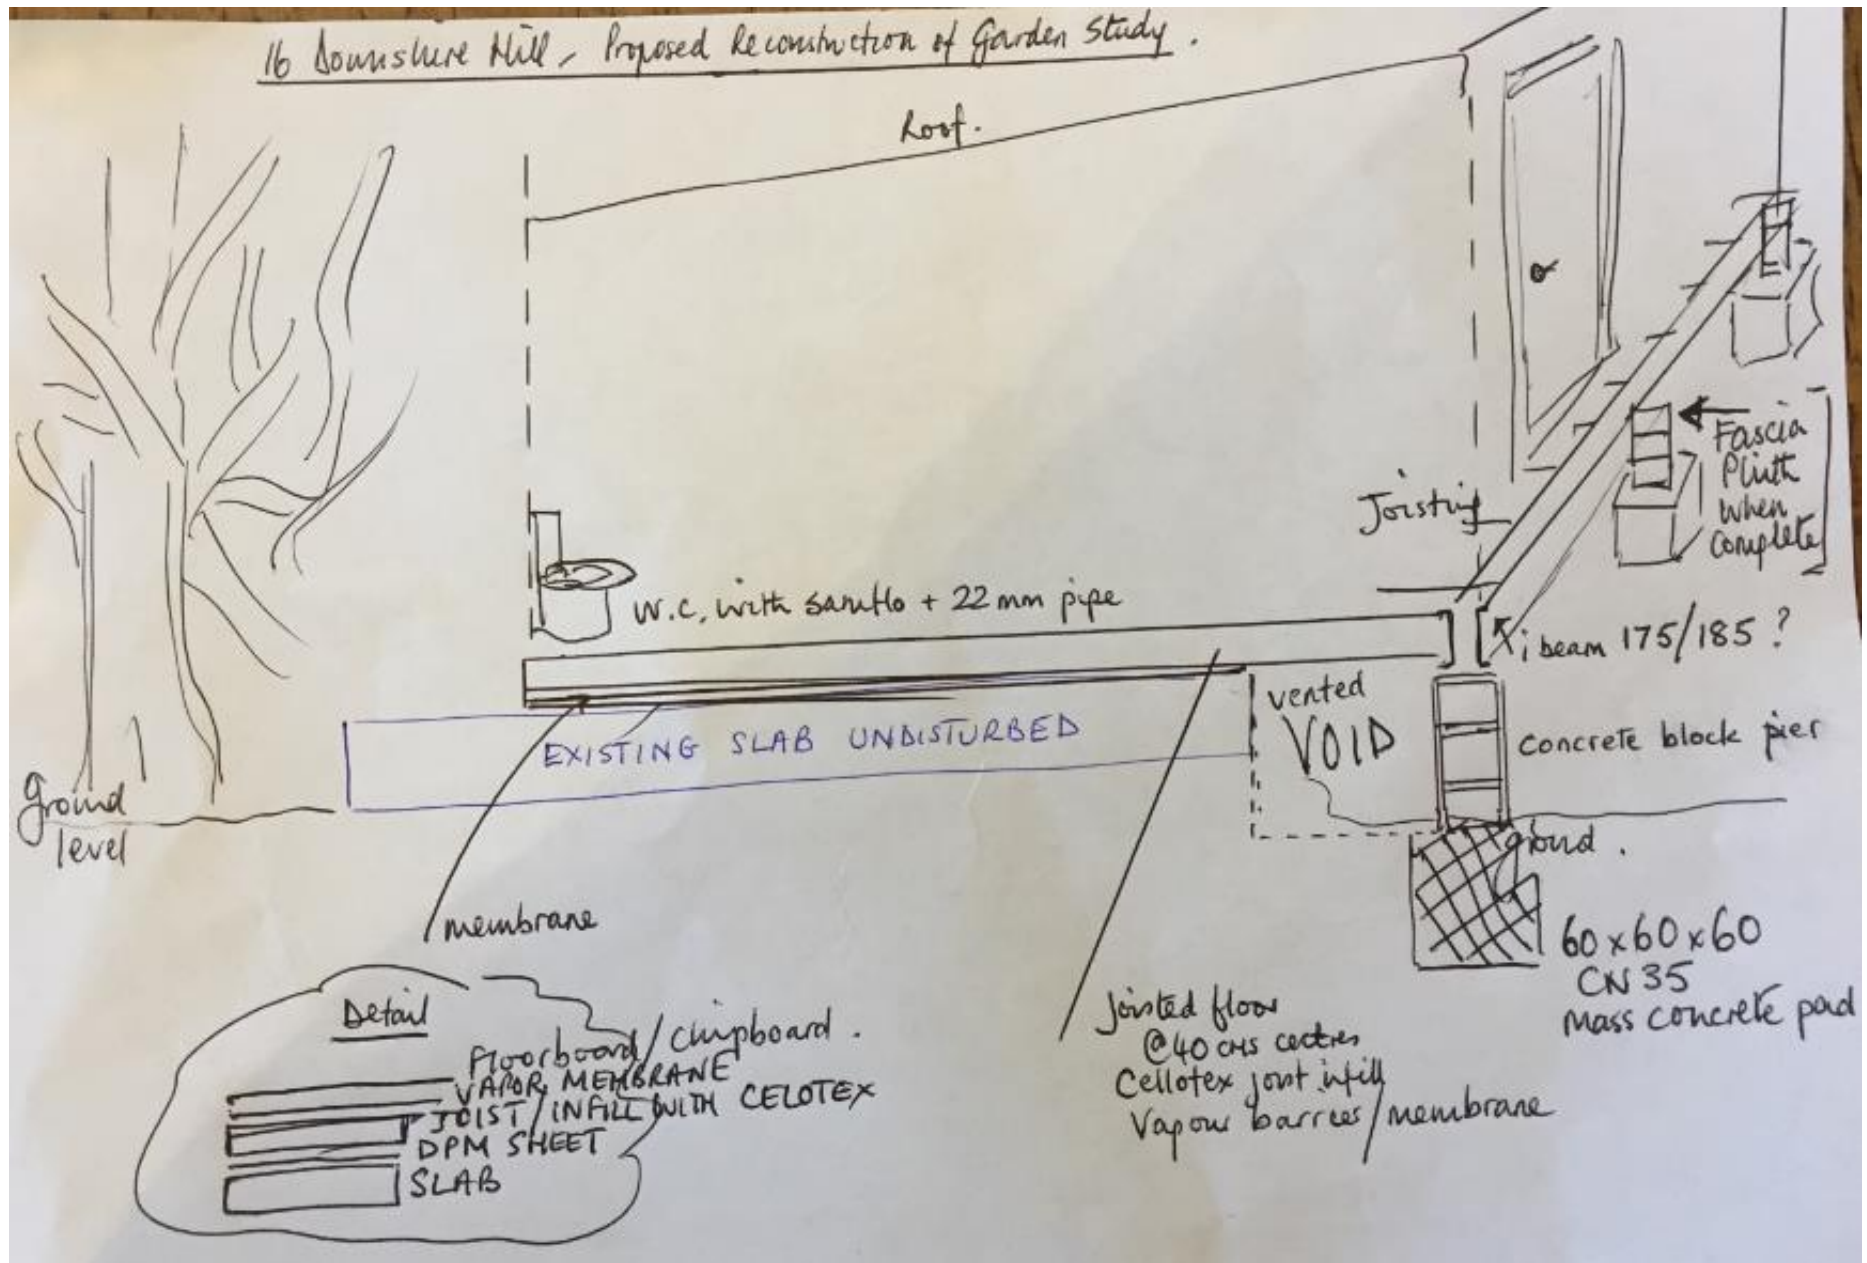 16 Downshire Hill - Proposed Reconstruction of Garden Study.
Roof.
Joisting
Fascia
Plinth
when
complete
W.C. with saniflo + 22 mm pipe
i beam 175/185 ?
vented
VOID
EXISTING SLAB UNDISTURBED
concrete block pier
Ground
level
ground.
membrane
60x60x60
CN 35
Mass concrete pad
Detail
Floorboard/chipboard.
VAPOR MEMBRANE
JOIST/INFILL WITH CELOTEX
DPM SHEET
SLAB
Joisted floor
@40 cms centres
Cellotex joist infill
Vapour barrier/membrane